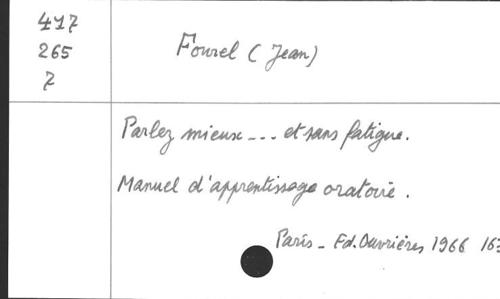 417
265
7
Fourel (Jean)
Parlez mieux --- et sans fatigue.
Manuel d'apprentissage oratoire.
Paris - Ed. Ouvrières 1966 16